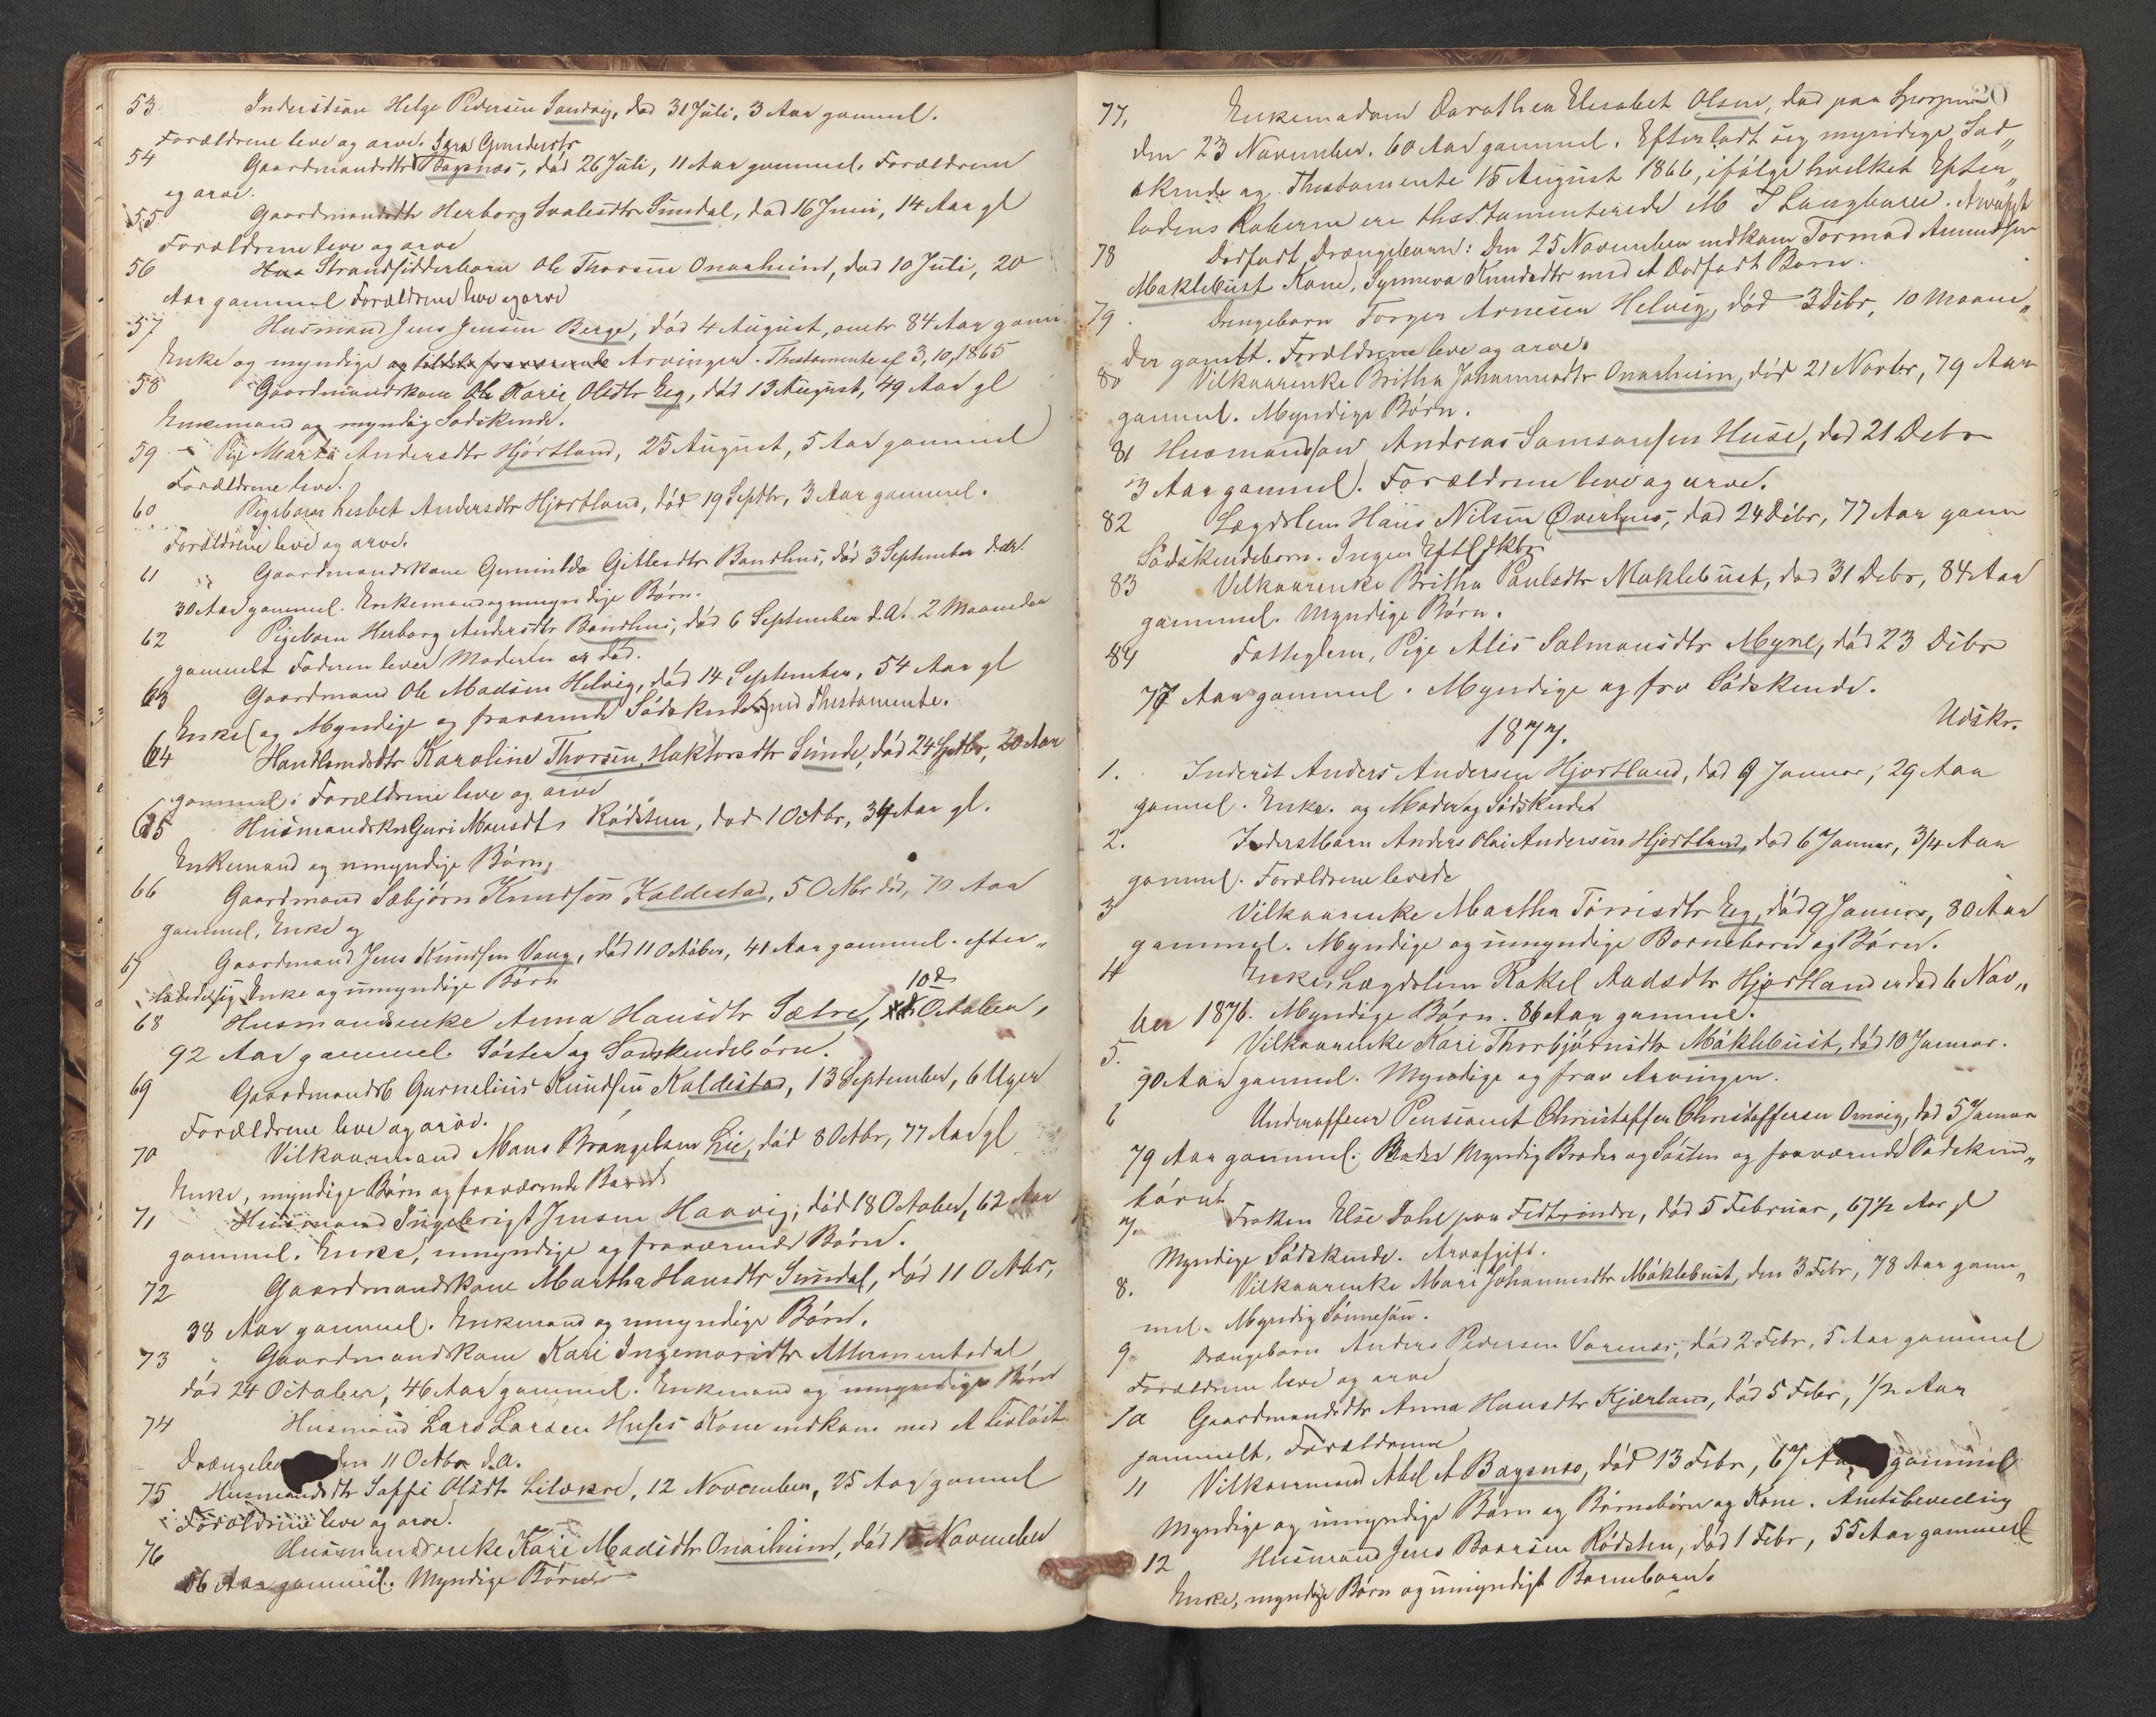 53 Inderstsøn Helge Pedersen Sandvig, død 31 Juli, 3 Aar gammel.
Forældrene leve og arve. Sara Gundersdtr
54 Gaardmandsdtr Bagsnæs, död 26 Juli, 11 Aar gammel. Forældrene
og arve.
55 Gaardmandsdtr Herborg Svalesdtr Sundal, død 16 Juni, 14 Aar gl
Forældrene leve og arve
56 Hus Strandsidderbarn Ole Thorsen Onarheim, død 10 Juli, 20
Aar gammel Forældrene leve og arve
57 Husmand Jens Jensen Berge, död 4 August, omtr 84 Aar gam
Enke og myndige og fraværende Arvinger. Thestamente af 3,10,1865
58 Gaardmandskone Ole Kari Olsdtr Eeg, död 13 August, 49 Aar gl
Enkemand og myndig Sødskende.
59 Pige Marta Andersdtr Hjörtland, 25 August, 5 Aar gammel
Forældrene leve.
60 Pigebarn Lisbet Andersdtr Hjortland, död 19 Septbr, 3 Aar gammel.
Forældrene leve og arve.
61 " Gaardmandskone Gunnilda Gitlesdtr Bondhus, död 3 September d.A.
30 Aar gammel. Enkemand og umyndige Børn.
62 Pigebarn Herborg Andersdtr Bondhus, död 6 September d.A. 2 Maaneder
gammelt Faderen lever Moderen er död.
63 Gaardmand Ole Madsen Helvig, död 14 September, 54 Aar gl
Enke (og Myndige og fraværende Södskende) med Thestamente.
64 Handlemdsdtr Karoline Thorsen Haktorsdtr Sunde, död 24 Septbr, 20 Aar
gammel; Forældrene leve og arve
65 Husmandskn Guri Monsdtr Rödsteen, død 1 Octbr, 34 Aar gl.
Enkemand og umyndige Börn,
66 Gaardmand Sæbjørn Knudsen Kaldestad, 5 Octbr död, 70 Aar
gammel, Enke og
67 Gaardmand Jens Knudsen Vaag, död 11 October, 41 Aar gammel. efter„
lod sig Enke og umyndige Börn
10de
68 Husmandsenke Anna Hansdtr Sætre, October,
92 Aar gammel Söster og Södskendebörn.
69 Gaardmandsb Gurnelius Knudsen Kaldestad, 13 September, 6 Uger
Forældrene leve og arve.
70 Vilkaarmand Mons Brangelsen Lie, död 8 Octbr, 77 Aar gl
Enke, myndige Börn og fraværende Barn
71 Husmand Ingebrigt Jensen Haavig, död 18 October, 62 Aar
gammel. Enke, umyndige og fraværende Børn.
72 Gaardmandskone Martha Hansdtr Sundal, död 11 Octbr,
38 Aar gammel. Enkemand og umyndige Børn.
73 Gaardmandskone Kari Ingemoridtr Attramentsdal
död 24 October, 46 Aar gammel. Enkemand og umyndige Börn
74 Husmand Lars Larsen Huses Kone nedkom med et livlöst
Drængeb den 11 Octbr d.A.
75 Husmandsdtr Saffi Olsdtr Lilækre, 12 November, 25 Aar gammel
Forældrene leve og arve.
76 Husmandsenke Kari Madsdtr Onarheim, död November
66 Aar gammel. Myndige Börn
20
77, Enkemadam Dorothea Elisabet Olsen, død paa
den 23 November. 60 Aar gammel. Efterladt sig myndige Sød„
skende og Thestamente 15 August 1866, ifølge hvilket Efter„
ladens ere thestamenterede M. Arveafgft
78 Dødfødt Drængebarn: Den 25 November nedkom Tormod Amundsen
Maklebust Kone, Synneva Knudsdtr med et Dødfødt Barn.
79 Drengebarn Torger Arnesen Helvig, död 3 Debr, 10 Maane„
der gamlt. Forældrene leve og arve.
80 Vilkaarenke Britha Johannesdtr Onarheim, död 21 Novbr, 79 Aar
gammel. Myndige Börn.
81 Husmandsøn Andreas Samsonsen Huse, død 21 Debr
3 Aar gammel. Forældrene leve og arve.
82 Lægdslem Hans Nilsen Øverhus, død 24 Debr, 77 Aar gam
Södskendebørn. Ingen Eftl
83 Vilkaarenke Britha Paulsdtr Maklebust, død 31 Debr, 84 Aar
gammel. Myndige Börn.
84 Fattiglem, Pige Alis Salmonsdtr Myne, död 23 Debr
77 Aar gammel. Myndige og frv Södskende.
Udskr.
1877.
1. Inderst Anders Andersen Hjortland, død 9 Januar, 29 Aar
gammel. Enke. og Moder og Södskende
2. Inderstbarn Anders Olai Andersen Hjortland, død 6 Januar, 3/4 Aar
gammel. Forældrene levede
3 Vilkaarenke Martha Torrisdtr Eeg, död 9 Januar, 80 Aar
gammel. Myndige og umyndige Borneborn og Börn.
4 Enke, Lægdslem Rakel Aadsdtr Hjortland er død 6 Nov„
ber 1876. Myndige Börn. 86 Aar gammel.
5. Vilkaarenke Kari Thorbjørnsdtr Mäklebust, död 10 Januar.
90 Aar gammel. Myndige og frav Arvinger.
6 Underofficer Pensionist Christoffer Christoffersen Omvig, död 5 Januar
79 Aar gammel; Myndig Broder og Söster og fraværende Södskend„
börn
7. Frøken Else Dahl paa Fedtvindre, død 5 Februar, 67 1/2 Aar gl
Myndige Södskende. Arvafgift.
8. Vilkaarenke Mari Johannesdtr Mäklebust, den 3 Febr, 78 Aar gam„
mel. Myndig Sönnesön.
9 Drængebarn Anders Pedersen Varenæs, död 2 Febr, 5 Aar gammel
Forældrene leve og arve
10 Gaardmandsdtr Anna Hansdtr Kjærland, död 5 Febr, 1/2 Aar
gammelt, Forældrene
11 Vilkaarmand Abel A Bagsnæs, död 13 Febr, 67 A gammel
Myndige og umyndige Börn og Börnebörn og Kone. Amtsbevilling
12 Husmand Jens Baarsen Rödsten, död 1 Febr, 55 Aar gammel
Enke, myndige Börn og umyndigt Barnebarn.